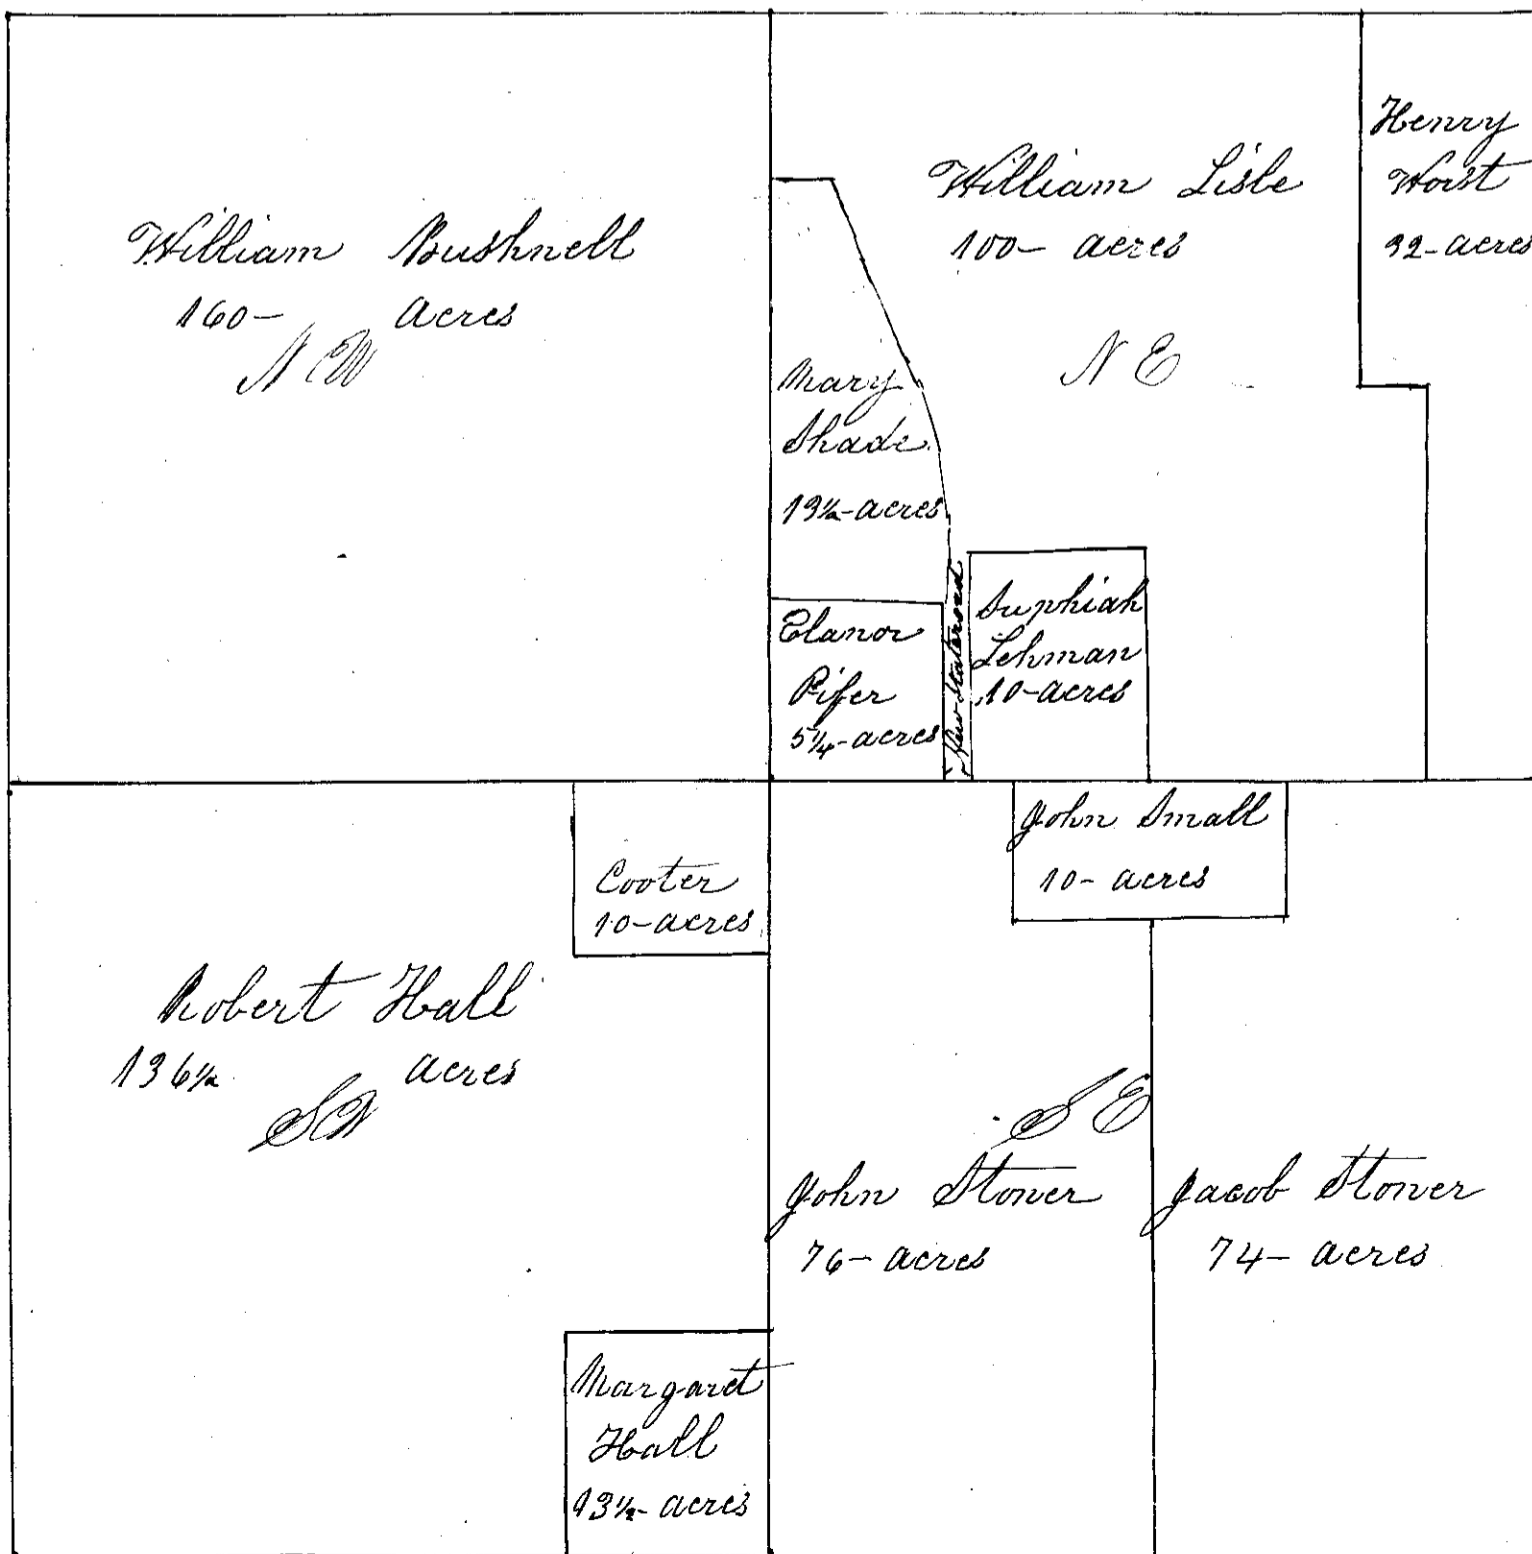 William Bushnell
160- acres
N W
William Lisle
100- acres
N E
Henry
Worst
32-acres
Mary
Shade
13½-acres
Elanor
Pifer
5¼-acres
New Stateroad
Suphiah
Lehman
10-acres
Cooter
10-acres
John Small
10- acres
Robert Hall
136½ acres
SW
S E
John Stoner
76- acres
Jacob Stoner
74- acres
Margaret
Hall
13½- acres